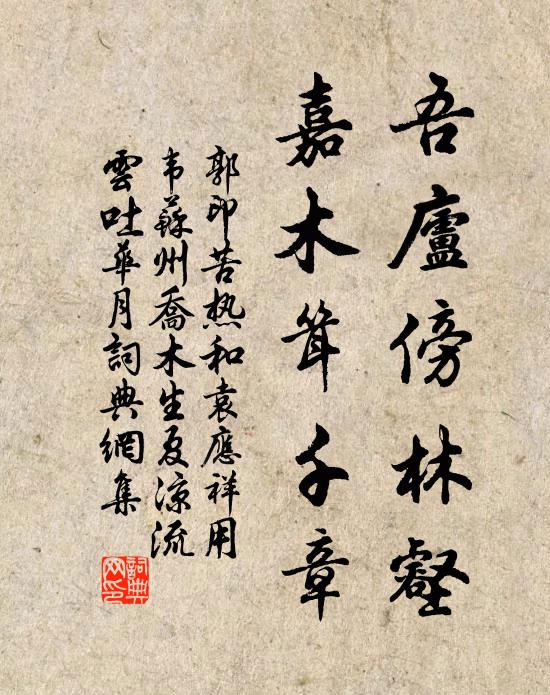 吾廬傍林壑
嘉木聳千章
郭印苦热和袁應祥用
韦蘇州喬木生夏凉流
雲吐華月詞典網集
詞典網印